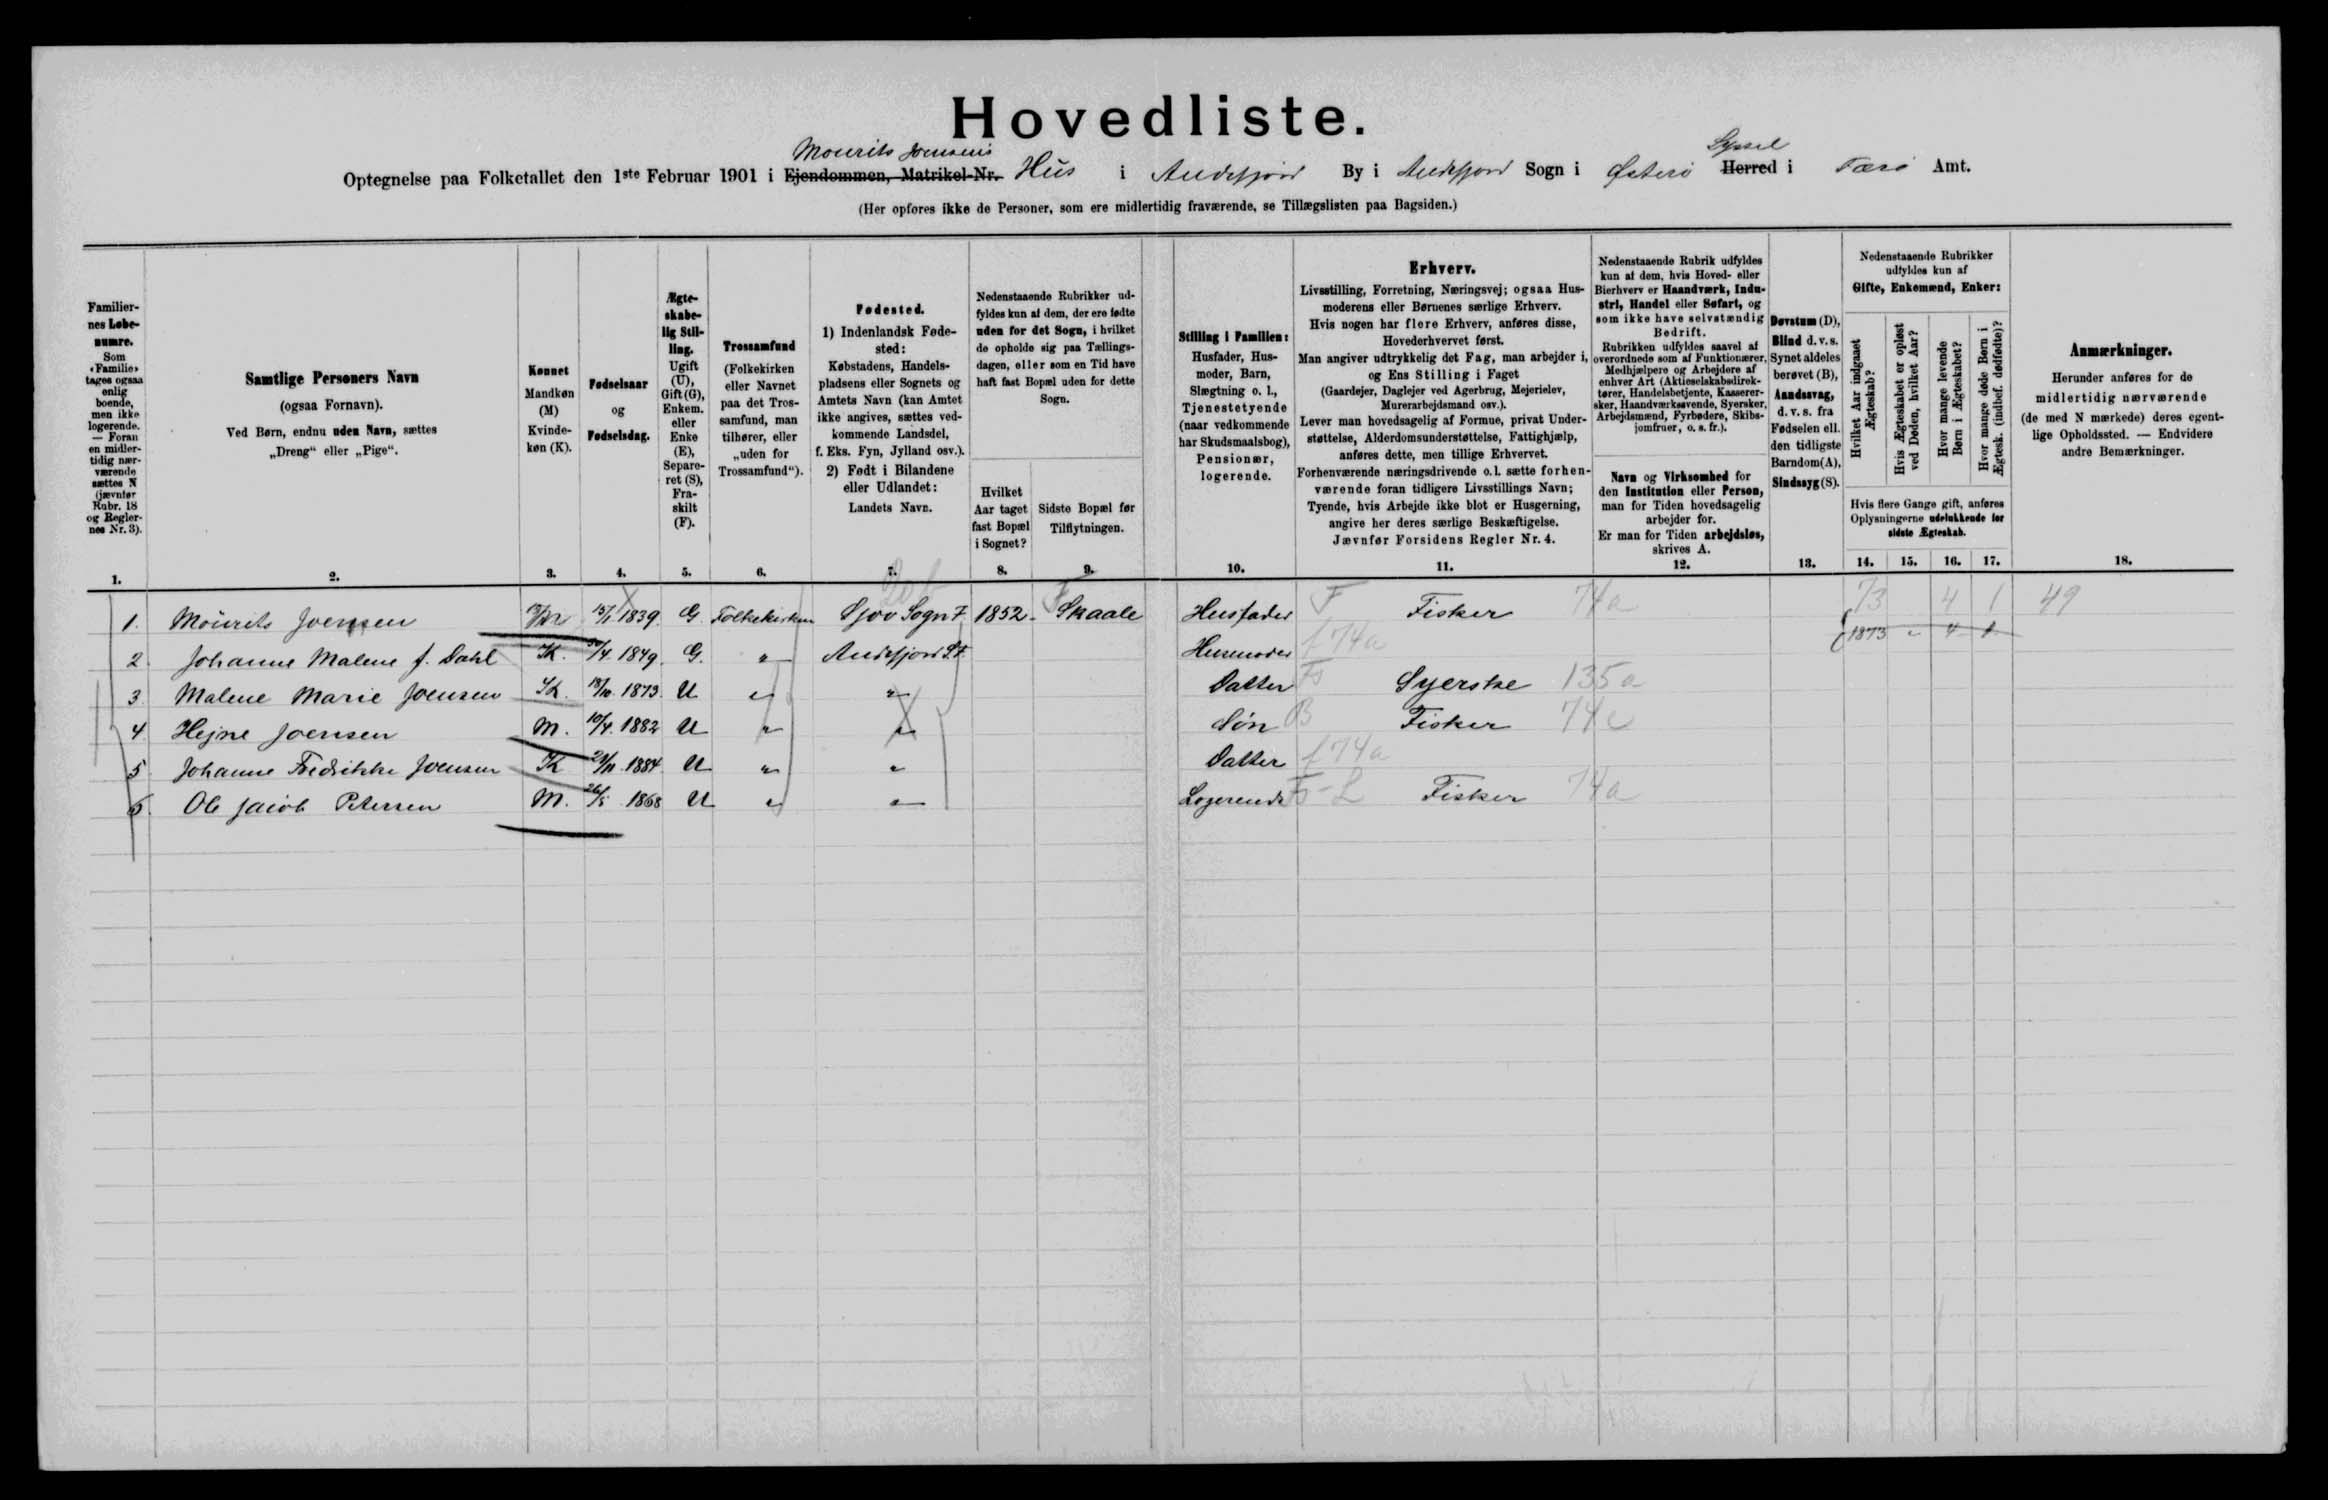 Hovedliste.
Mourits Joensens Syssel
Optegnelse paa Folketallet den 1ste Februar 1901 i Ejendommen, Matrikel-Nr. Hus i Andefjord By i Andefjord Sogn i Østerø Herred i Færø Amt.
(Her opføres ikke de Personer, som ere midlertidig fraværende, se Tillægslisten paa Bagsiden.)
Familier-
nes Løbe-
numre.
Som
«Familie»
tages ogsaa
enlig
boende,
men ikke
logerende.
— Foran
en midler-
tidig nær-
værende
sættes N
(jævnfør
Rubr. 18
og Regler-
nes Nr. 3).
Samtlige Personers Navn
(ogsaa Fornavn).
Ved Børn, endnu uden Navn, sættes
„Dreng“ eller „Pige“.
Kønnet
Mandkøn
(M)
Kvinde-
køn (K).
Fødselsaar
og
Fødselsdag.
Ægte-
skabe-
lig Stil-
ling.
Ugift
(U),
Gift (G),
Enkem.
eller
Enke
(E),
Separe-
ret (S),
Fra-
skilt
(F).
Trossamfund
(Folkekirken
eller Navnet
paa det Tros-
samfund, man
tilhører, eller
„uden for
Trossamfund“).
Fødested.
1) Indenlandsk Føde-
sted:
Købstadens, Handels-
pladsens eller Sognets og
Amtets Navn (kan Amtet
ikke angives, sættes ved-
kommende Landsdel,
f. Eks. Fyn, Jylland osv.).
2) Født i Bilandene
eller Udlandet:
Landets Navn.
Nedenstaaende Rubrikker ud-
fyldes kun af dem, der ere fødte
uden for det Sogn, i hvilket
de opholde sig paa Tællings-
dagen, eller som en Tid have
haft fast Bopæl uden for dette
Sogn.
Hvilket
Aar taget
fast Bopæl
i Sognet?
Sidste Bopæl før
Tilflytningen.
Stilling i Familien:
Husfader, Hus-
moder, Barn,
Slægtning o. l.,
Tjenestetyende
(naar vedkommende
har Skudsmaalsbog),
Pensionær,
logerende.
Erhverv.
Livsstilling, Forretning, Næringsvej; ogsaa Hus-
moderens eller Børnenes særlige Erhverv.
Hvis nogen har flere Erhverv, anføres disse,
Hovederhvervet først.
Man angiver udtrykkelig det Fag, man arbejder i,
og Ens Stilling i Faget
(Gaardejer, Daglejer ved Agerbrug, Mejerielev,
Murerarbejdsmand osv.).
Lever man hovedsagelig af Formue, privat Under-
støttelse, Alderdomsunderstøttelse, Fattighjælp,
anføres dette, men tillige Erhvervet.
Forhenværende næringsdrivende o. l. sætte forhen-
værende foran tidligere Livsstillings Navn;
Tyende, hvis Arbejde ikke blot er Husgerning,
angive her deres særlige Beskæftigelse.
Jævnfør Forsidens Regler Nr. 4.
Nedenstaaende Rubrik udfyldes
kun af dem, hvis Hoved- eller
Bierhverv er Haandværk, Indu-
stri, Handel eller Søfart, og
som ikke have selvstændig
Bedrift.
Rubrikken udfyldes saavel af
overordnede som af Funktionærer,
Medhjælpere og Arbejdere af
enhver Art (Aktieselskabsdirek-
tører, Handelsbetjente, Kasserer-
sker, Haandværkssvende, Syersker,
Arbejdsmænd, Fyrbødere, Skibs-
jomfruer, o. s. fr.).
Navn og Virksomhed for
den Institution eller Person,
man for Tiden hovedsagelig
arbejder for.
Er man for Tiden arbejdsløs,
skrives A.
Døvstum (D),
Blind d. v. s.
Synet aldeles
berøvet (B),
Aandssvag,
d. v. s. fra
Fødselen ell.
den tidligste
Barndom (A),
Sindssyg (S).
Nedenstaaende Rubrikker
udfyldes kun af
Gifte, Enkemænd, Enker:
Hvilket Aar indgaaet
Ægteskab?
Hvis Ægteskabet er opløst
ved Døden, hvilket Aar?
Hvor mange levende
Børn i Ægteskabet?
Hvor mange døde Børn i
Ægtesk. (indbef. dødfødte)?
Hvis flere Gange gift, anføres
Oplysningerne udelukkende for
sidste Ægteskab.
Anmærkninger.
Herunder anføres for de
midlertidig nærværende
(de med N mærkede) deres egent-
lige Opholdssted. — Endvidere
andre Bemærkninger.
1. 2. 3. 4. 5. 6. 7. 8. 9. 10. 11. 12. 13. 14. 15. 16. 17. 18.
1. Mourits Joensen M 15/1 1839 G. Folkekirken Sjov Sogn F. 1852. F Skaale Husfader F Fisker 74a 73 4 1 49
1873 " 4 1
2 Johanne Malene f. Dahl K. 30/4. 1849. G. " Andefjord S. F. Husmoder f 74a
3 Malene Marie Joensen K. 18/10. 1873. U " " Datter Fs Syerske 135a
4 Hejne Joensen M. 10/4. 1882 U " " Søn B Fisker 74c
5 Johanne Fredrikke Joensen K 21/11. 1884. U " " Datter f 74a
6. Ole Jacob Petersen M. 26/5 1868 U " " Logerende Fs-L Fisker 74a